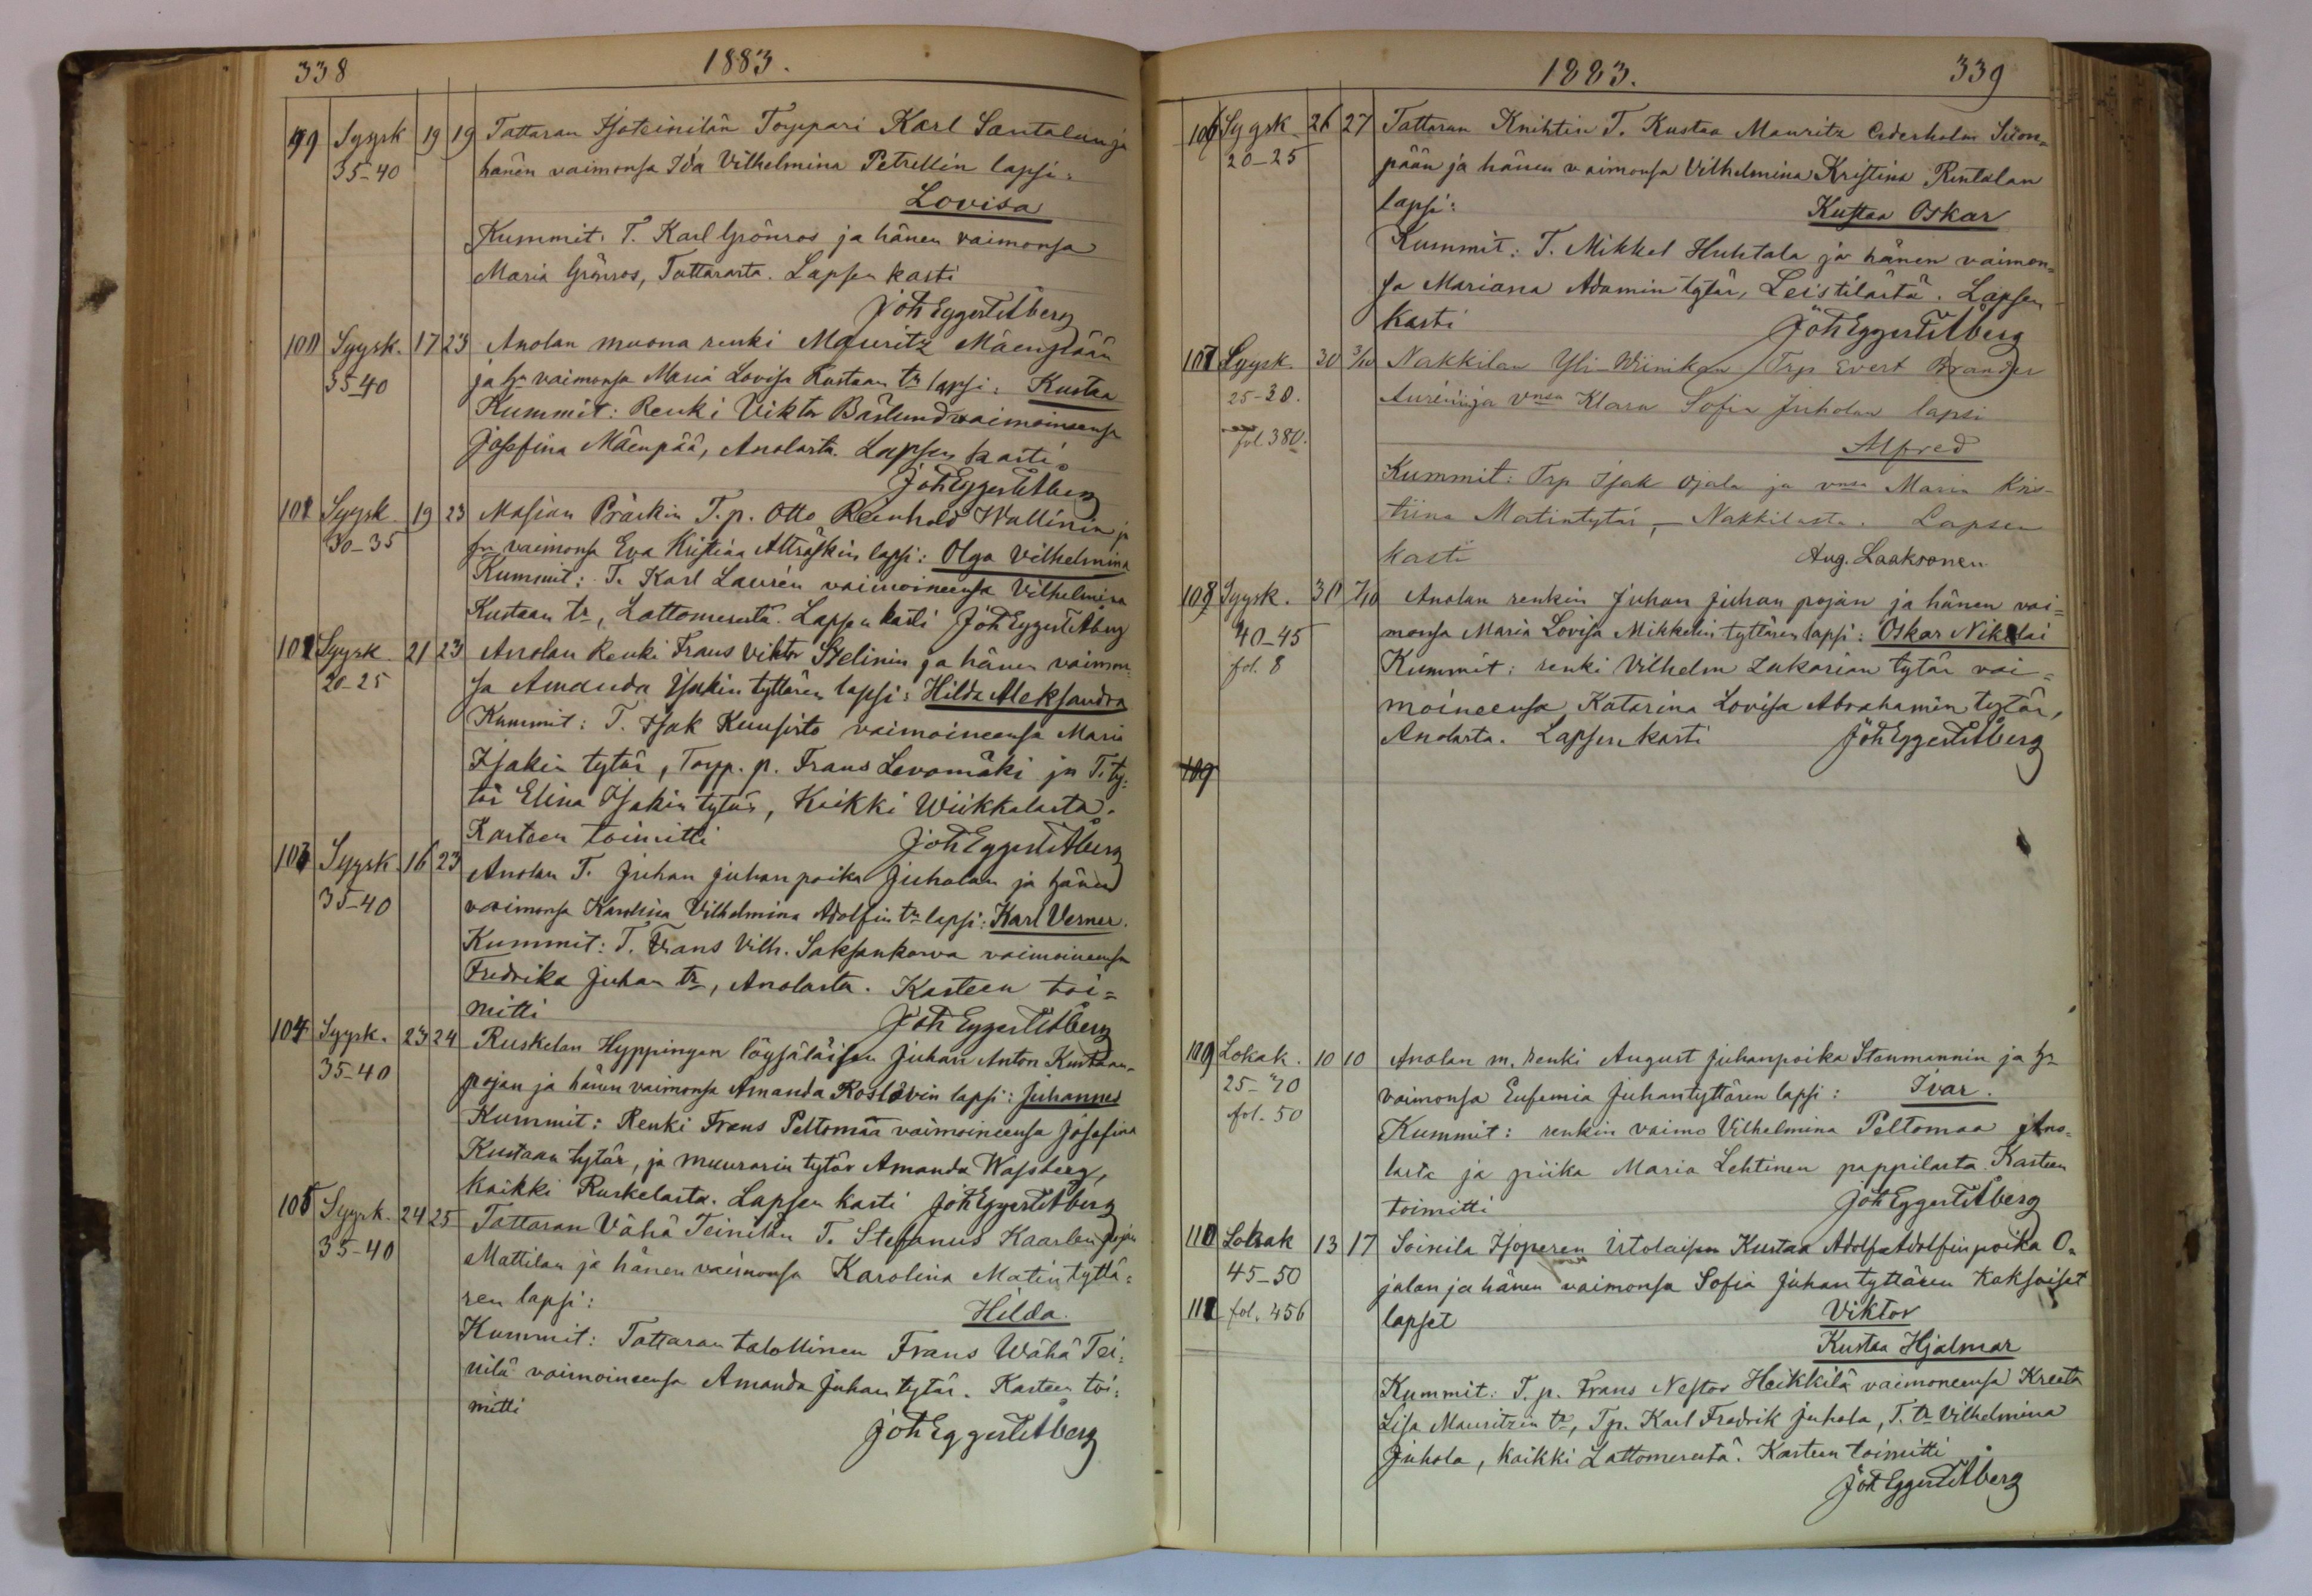 338
1883.
99 Syysk 19 19 Tattaran Isoteinilän Torppari Karl Santalan ja
35-40 hänen vaimonsa Ida Vilhelmina Petrellin lapsi:
Lovisa
Kummit: T. Karl Grönros ja hänen vaimonsa
Maria Grönros, Tattarasta. Lapsen kasti
Joh Eggert Åberg
100 Syysk. 17 23 Anolan muona renki Mauritz Mäenpään
35-40 ja hn vaimonsa Maria Lovisa Kustaan tr lapsi: Kustaa
Kummit: Renki Viktor Bärlund vaimoineensa
Josefina Mäenpää, Anolasta. Lapsen kasti
Joh Eggert Åberg
101 Syysk 19 23 Masian Präskin T.p. Otto Reinhold Wallinin ja
30-35 hn vaimonsa Eva Kristina Altträskin lapsi: Olga Vilhelmina
Kummit: T. Karl Laurén vaimoineensa Vilhelmina
Kustaan tr, Lattomerestä. Lapsen kasti Joh Eggert Åberg
102 Syysk 21 23 Anolan Renki Frans Viktor Sjelinin ja hänen vaimon=
20-25 sa Amanda Isakin tyttären lapsi: Hilda Aleksandra
Kummit: T. Isak Kuusisto vaimoineensa Maria
Isakin tytär, Torp. p. Frans Levomäki ja T. ty=
tär Elina Isakin tytär, Kaikki Wiikkalasta.
Kasteen toimitti Joh Eggert Åberg
103 Syysk. 16 23 Anolan T. Juhan Juhanpoika Juhalan ja hänen
35-40 vaimonsa Karolina Vilhelmina Adolfin tr lapsi: Karl Verner.
Kummit: T. Frans Vilh. Saksankorva vaimoineensa
Fredrika Juhan tr, Anolasta. Kasteen toi=
mitti Joh Eggert Åberg
104 Syysk. 23 24 Ruskelan Hyppingen löysäläisen Juhan Anton Kustaan=
35-40 pojan ja hänen vaimonsa Amanda Roslövin lapsi: Juhannes
Kummit: Renki Frans Peltomaa vaimoineensa Josefina
Kustaan tytär, ja muurarin tytär Amanda Wassberg,
kaikki Ruskelasta. Lapsen kasti Joh Eggert Åberg
105 Syysk. 24 25 Tattaran Vähä Teinilän T. Stefanus Kaarlen pojan
35-40 Mattilan ja hänen vaimonsa Karolina Matin tyttä=
ren lapsi: Hilda.
Kummit: Tattaran talollinen Frans Wähä Tei=
nilä vaimoineensa Amanda Juhan tytär. Kasteen toi=
mitti
Joh Eggert Åberg
1883. 339
106 Syysk. 26 27 Tattaran Knihtin T. Kustaa Mauritz Cederholm Suon=
20-25 pään ja hänen vaimonsa Vilhelmina Kristina Rintalan
lapsi: Kustaa Oskar
Kummit: T. Mikkel Huhtala ja hänen vaimon=
sa Mariana Adamin tytär, Leistilästä. Lapsen
kasti Joh Eggert Åberg
107 Syysk. 30 3/10 Nakkilan Yli-Wiinikan Trp Evert Brander
25-30. Aurénin ja vnsa Klara Sofia Juholan lapsi
fol. 380.
Alfred
Kummit: Trp Isak Ojala ja vnsa Maria Kris-
tiina Matintytär, - Nakkilasta. Lapsen
kasti Aug. Laaksonen
108 Syysk. 30 7/10 Anolan renkin Juhan Juhan pojan ja hänen vai=
40-45 monsa Maria Lovisa Mikkelin tyttären lapsi: Oskar Nikolai
fol. 8 Kummit: renki Vilhelm Sakarian tytär vai=
moineensa Katarina Lovisa Abrahamin tytär,
Anolasta. Lapsen kasti Joh Eggert Åberg
109
109 Lokak. 10 10 Anolan m. renki August Juhanpoika Stenmannin ja hn
25-30 vaimonsa Eufemia Juhantyttären lapsi: Ivar.
fol. 50 Kummit: renkin vaimo Vilhelmina Peltomaa Ano=
lasta ja piika Maria Lehtinen pappilasta. Kasteen
toimitti Joh Eggert Åberg
110 Lokak 13 17 Soinila Isoperen itsolaisen Kustaa Adolf Adolfin poika O=
45-50 jalan ja hänen vaimonsa Sofia Juhan tyttären Kaksoiset
111 fol. 456 lapset Viktor
Kustaa Hjalmar
Kummit: T. p. Frans Nestor Heikkilä vaimoneensa Kreeta
Lisa Mauritzin tr, Tp. Karl Fredrik Juhola, T. tr Vilhelmina
Juhola, kaikki Lattomerestä. Kasteen toimitti
Joh Eggert Åberg